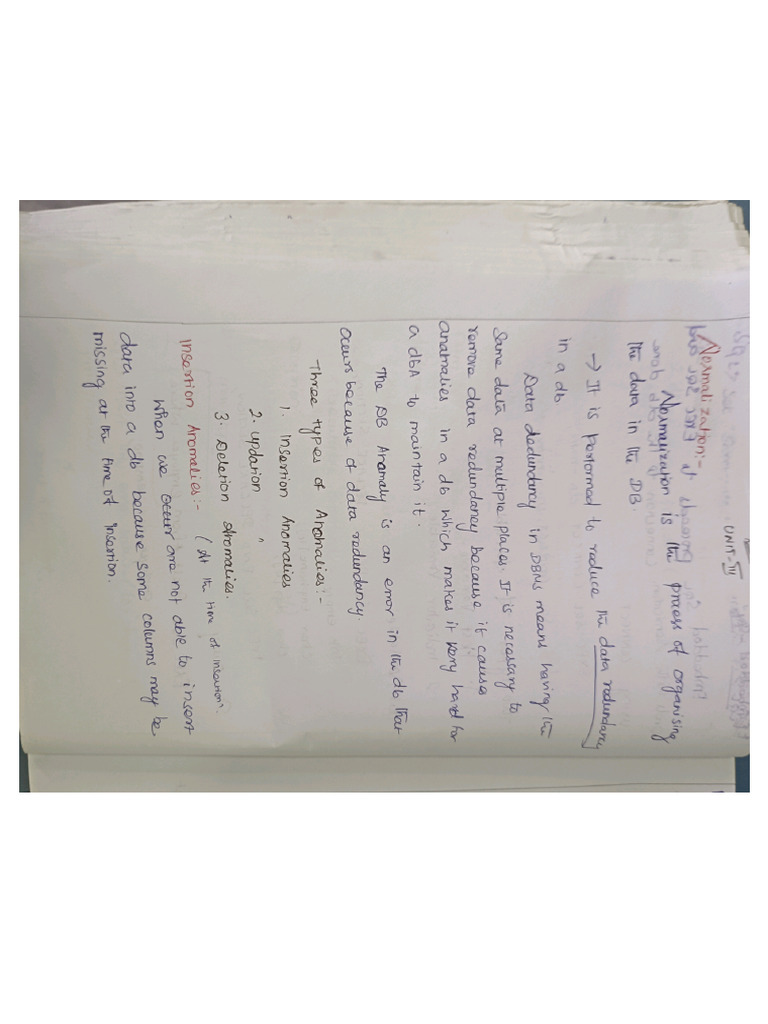 UNIT-III
Normalization:-
Normalization is the process of organising
the data in the DB
→ It is performed to reduce the data redundancy
in a db
Data dedundancy in DBMS means having the
Same data at multiple places. It is necessary to
remove data redundancy because it causes
anatmalies in a db which makes it very hard for
a dbA to maintain it.
The DB Anamaly is an error in the db that
occurs because of data redundancy
Three types of Anomalies:-
1. Insertion Anomalies
2. updation "
3. Deletion Anomalies.
Insertion Anomalies:- (At the time of insertion).
When we occur are not able to insert
data into a db because some columns may be
missing at the time of Insertion.